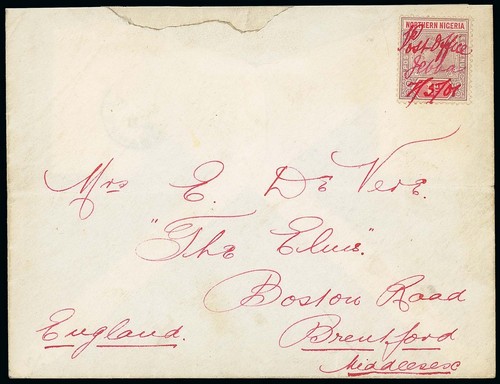 NORTHERN NIGERIA
Post Office
Jebba
7/5/01
Mrs E. De Vere.
"The Elms".
Boston Road
Brentford
Middlesex
England.